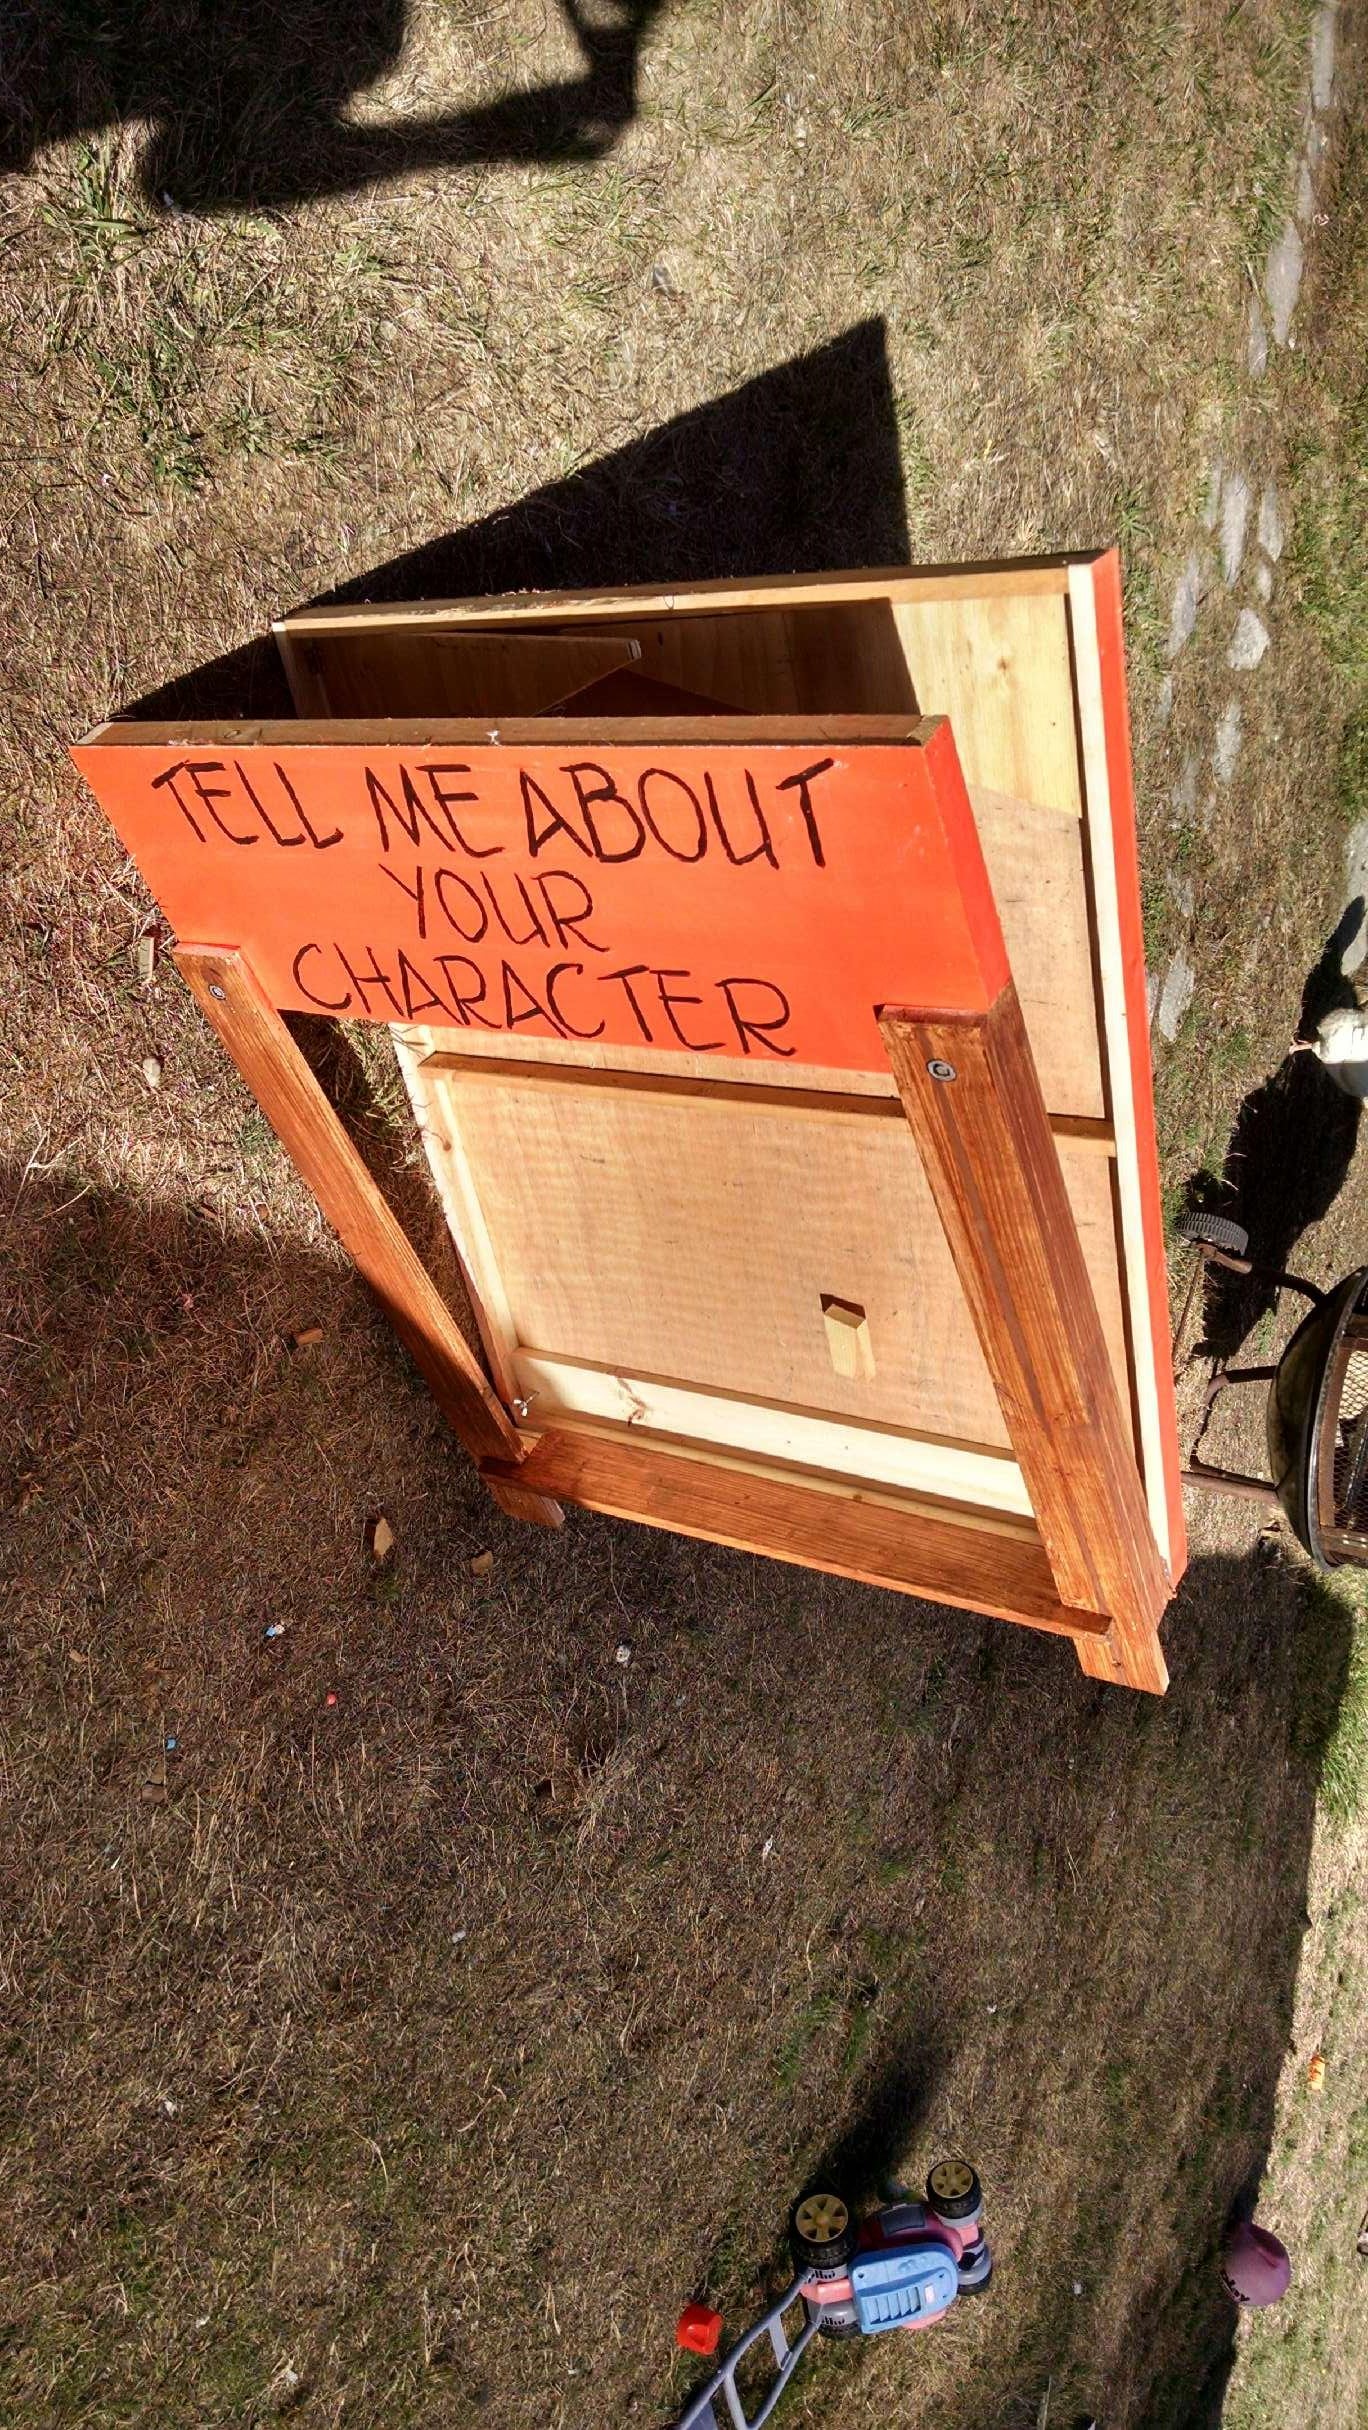 TELL ME ABOUT
YOUR
CHARACTER